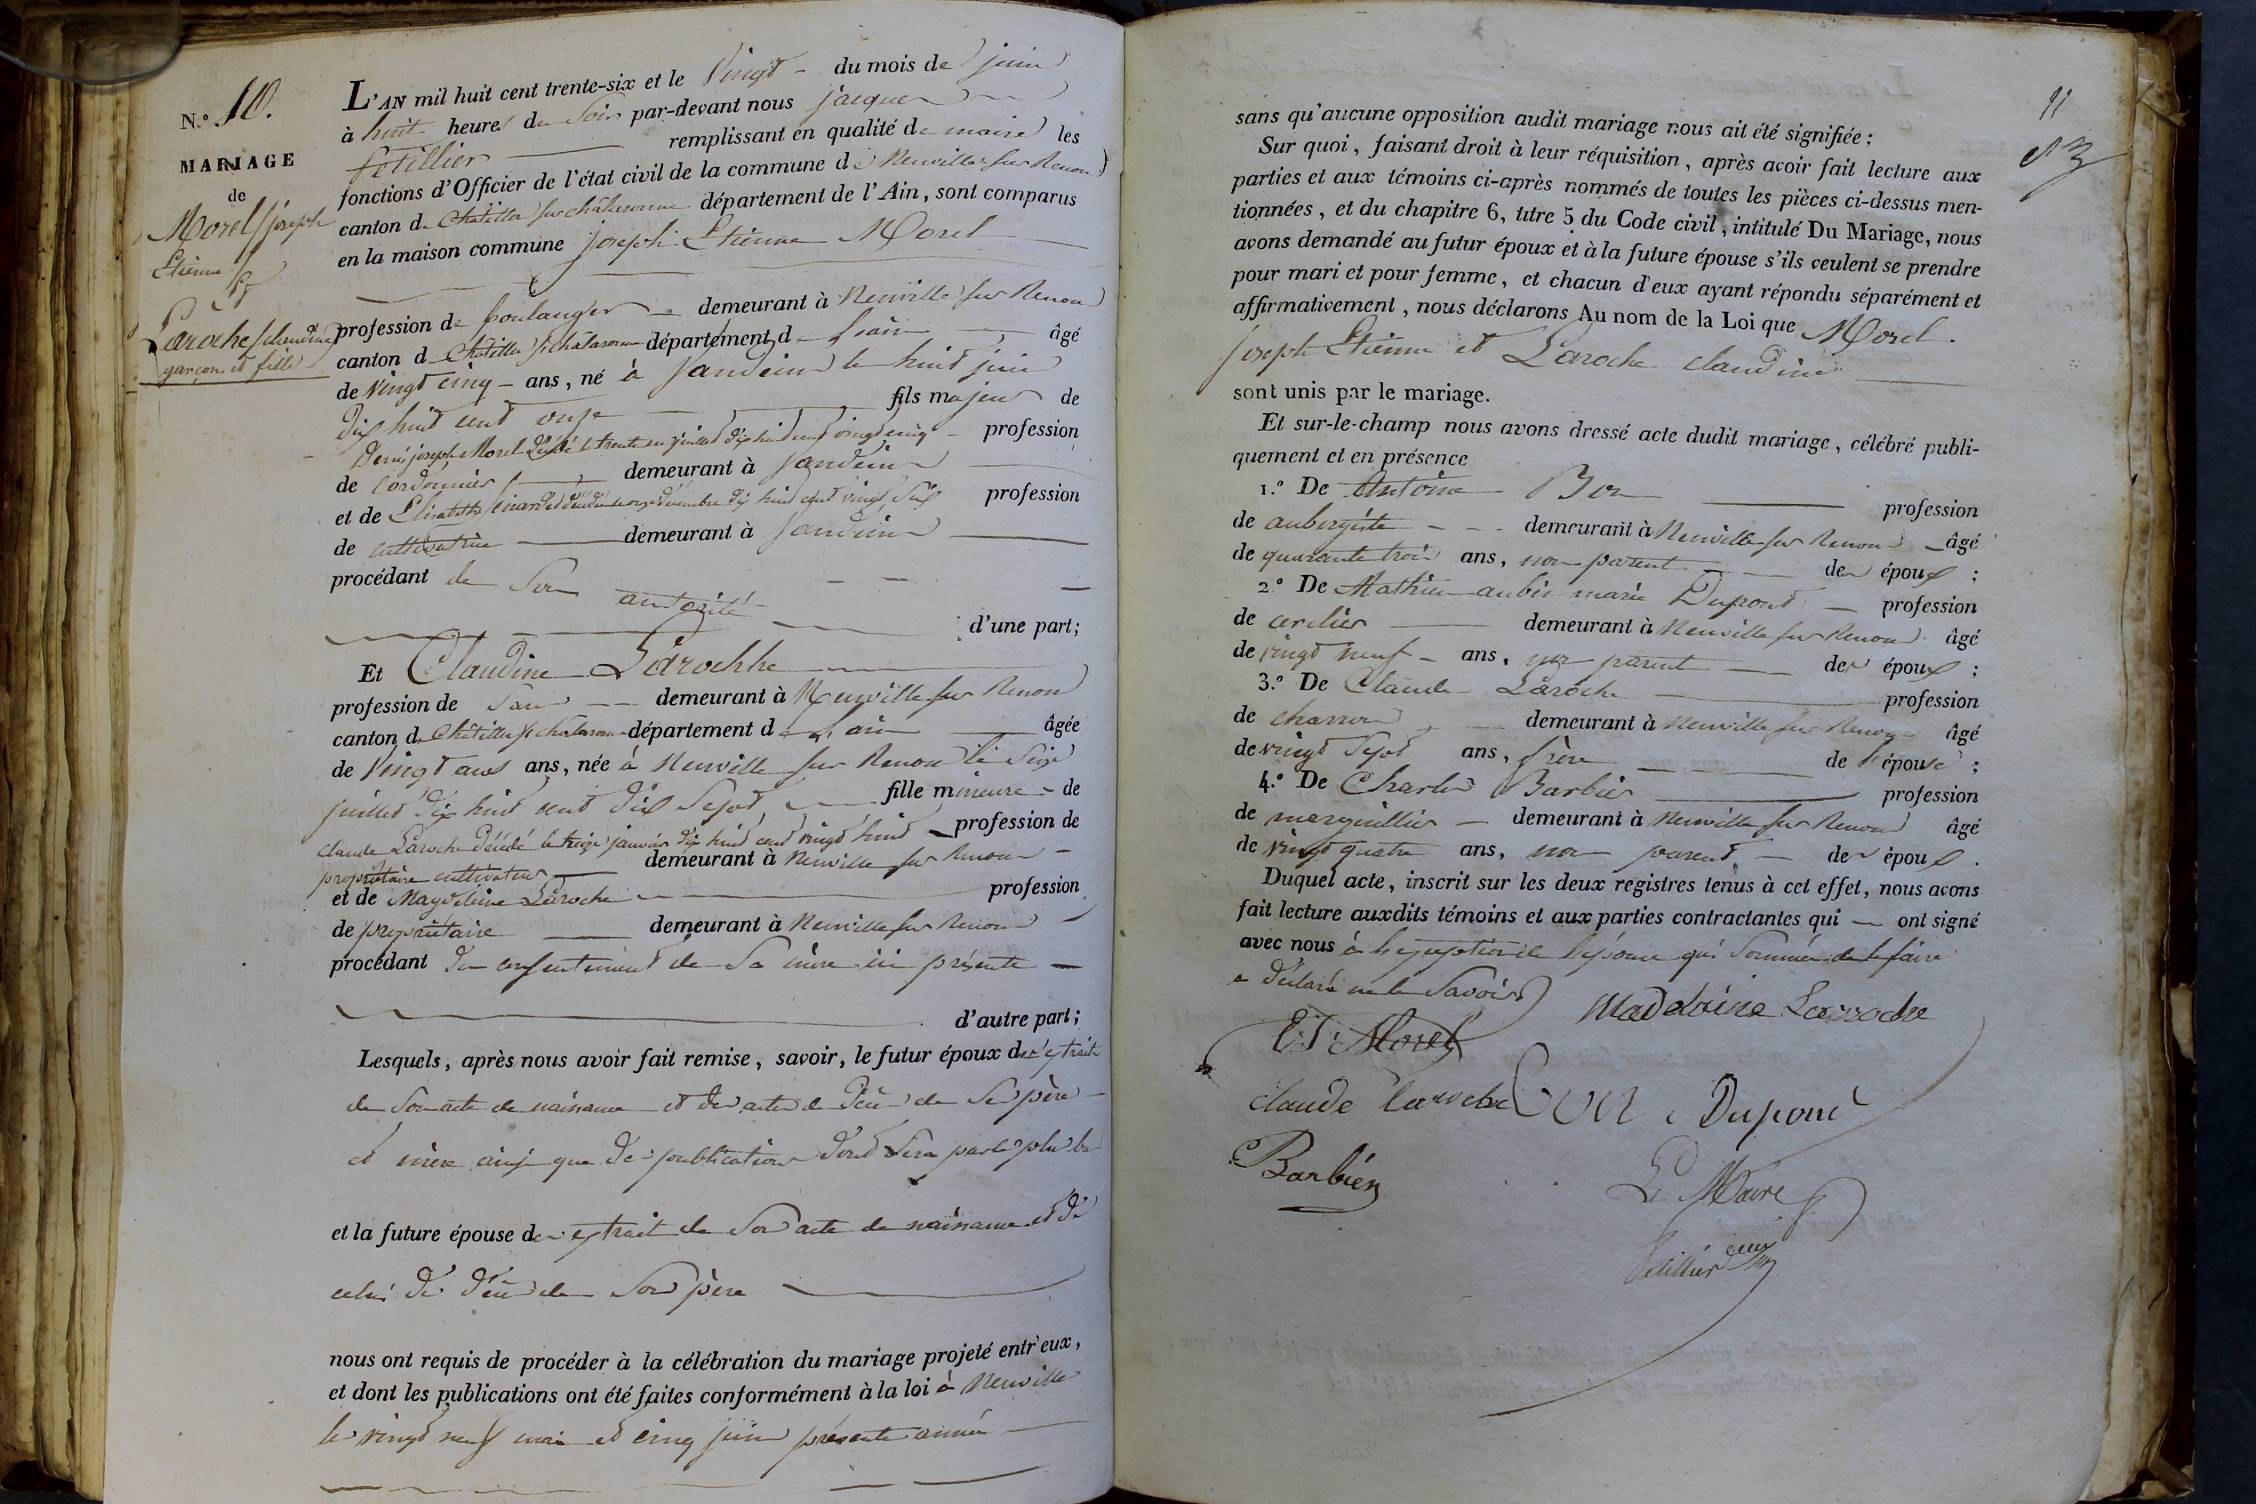 N.º 10.
MARIAGE
de
Morel joseph
Etienne
et
Laroche claudine
garçon et fille
L'AN mil huit cent trente-six et le Vingt du mois de juin
à huit heures du Soir par-devant nous jacques
fetillier remplissant en qualité de maire les
fonctions d'Officier de l'état civil de la commune de Neuville sur Renon
canton de Chatillon sur chalaronne département de l'Ain, sont comparus
en la maison commune joseph Etienne Morel
profession de boulanger demeurant à Neuville sur Renon
canton de Chatillon s/ chalaronne département de l'ain âgé
de Vingt cinq ans, né à Sandeins le huit juin
dix huit cent onze fils majeur de
Denis joseph Morel décédé le trente un juillet dix huit cent vingt cinq profession
de Cordonnier demeurant à Sandeins
et de Elisabeth décédée le onze décembre dix huit cent vingt Six profession
de cultivatrice demeurant à Sandeins
procédant de Son autorité
d'une part;
Et Claudine Larochhe
profession de Sans demeurant à Neuville sur Renon
canton de Chatillon s/ chalaronne département de l'ain âgée
de Vingt ans ans, née à Neuville sur Renon le Seize
juillet dix huit cent dix Sept fille mineure de
claude Laroche décédé le treize janvier dix huit cent vingt huit profession de
propriétaire cultivateur demeurant à Neuville sur Renon
et de Magdeleine Laroche profession
de propriétaire demeurant à Neuville sur Renon
procédant du consentement de Sa mère ici présente
d'autre part;
Lesquels, après nous avoir fait remise, savoir, le futur époux des extraits
de Son acte de naissance et des actes de décès de Ses père
et mère ainsi que des publications dont Sera parlé plus bas
et la future épouse des extrait de Son acte de naissance et de
celui de décès de Son père
nous ont requis de procéder à la célébration du mariage projeté entr'eux,
et dont les publications ont été faites conformément à la loi à Neuville
les vingt neuf mai et cinq juin présente année
11
sans qu'aucune opposition audit mariage nous ait été signifiée;
Sur quoi, faisant droit à leur réquisition, après avoir fait lecture aux
parties et aux témoins ci-après nommés de toutes les pièces ci-dessus men-
tionnées, et du chapitre 6, titre 5 du Code civil, intitulé Du Mariage, nous
avons demandé au futur époux et à la future épouse s'ils veulent se prendre
pour mari et pour femme, et chacun d'eux ayant répondu séparément et
affirmativement, nous déclarons Au nom de la Loi que Morel
joseph Etienne et Laroche claudine
sont unis par le mariage.
Et sur-le-champ nous avons dressé acte dudit mariage, célébré publi-
quement et en présence
1.º De Antoine Bon profession
de aubergiste demeurant à Neuville sur Renon âgé
de quarante trois ans, non parent des époux ;
2.º De Mathieu aubin marie Dupont profession
de cerclier demeurant à Neuville sur Renon âgé
de vingt neuf ans, non parent des époux ;
3.º De Claude Laroche profession
de charron demeurant à Neuville sur Renon âgé
de vingt Sept ans, frère de l'épouse ;
4.º De Charles Barbier profession
de marguillier demeurant à Neuville sur Renon âgé
de vingt quatre ans, non parent des époux .
Duquel acte, inscrit sur les deux registres tenus à cet effet, nous avons
fait lecture auxdits témoins et aux parties contractantes qui ont signé
avec nous à l'exception de l'épouse qui Sommée de le faire
a déclaré ne le Savoir
Madelaine Larroche
E J Morel
claude laroche Bon Dupont
Barbier
Le Maire
fetillier